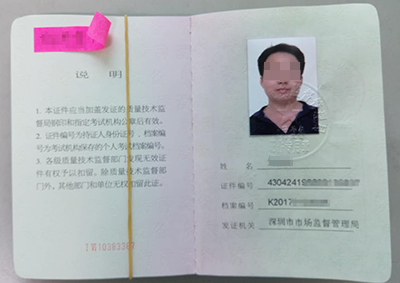 说 明
1. 本证件应当加盖发证的质量技术监
督局钢印和指定考试机构公章后有效。
2. 证件编号为持证人身份证号，档案编
号为考试机构保存的个人考试档案编号。
3. 各级质量技术监督部门发现无效证
件有权予以扣留，除质量技术监督部
门外，其他部门和单位无权扣留此证。
姓 名
证件编号 4304241
档案编号 K2017
发证机关 深圳市市场监督管理局